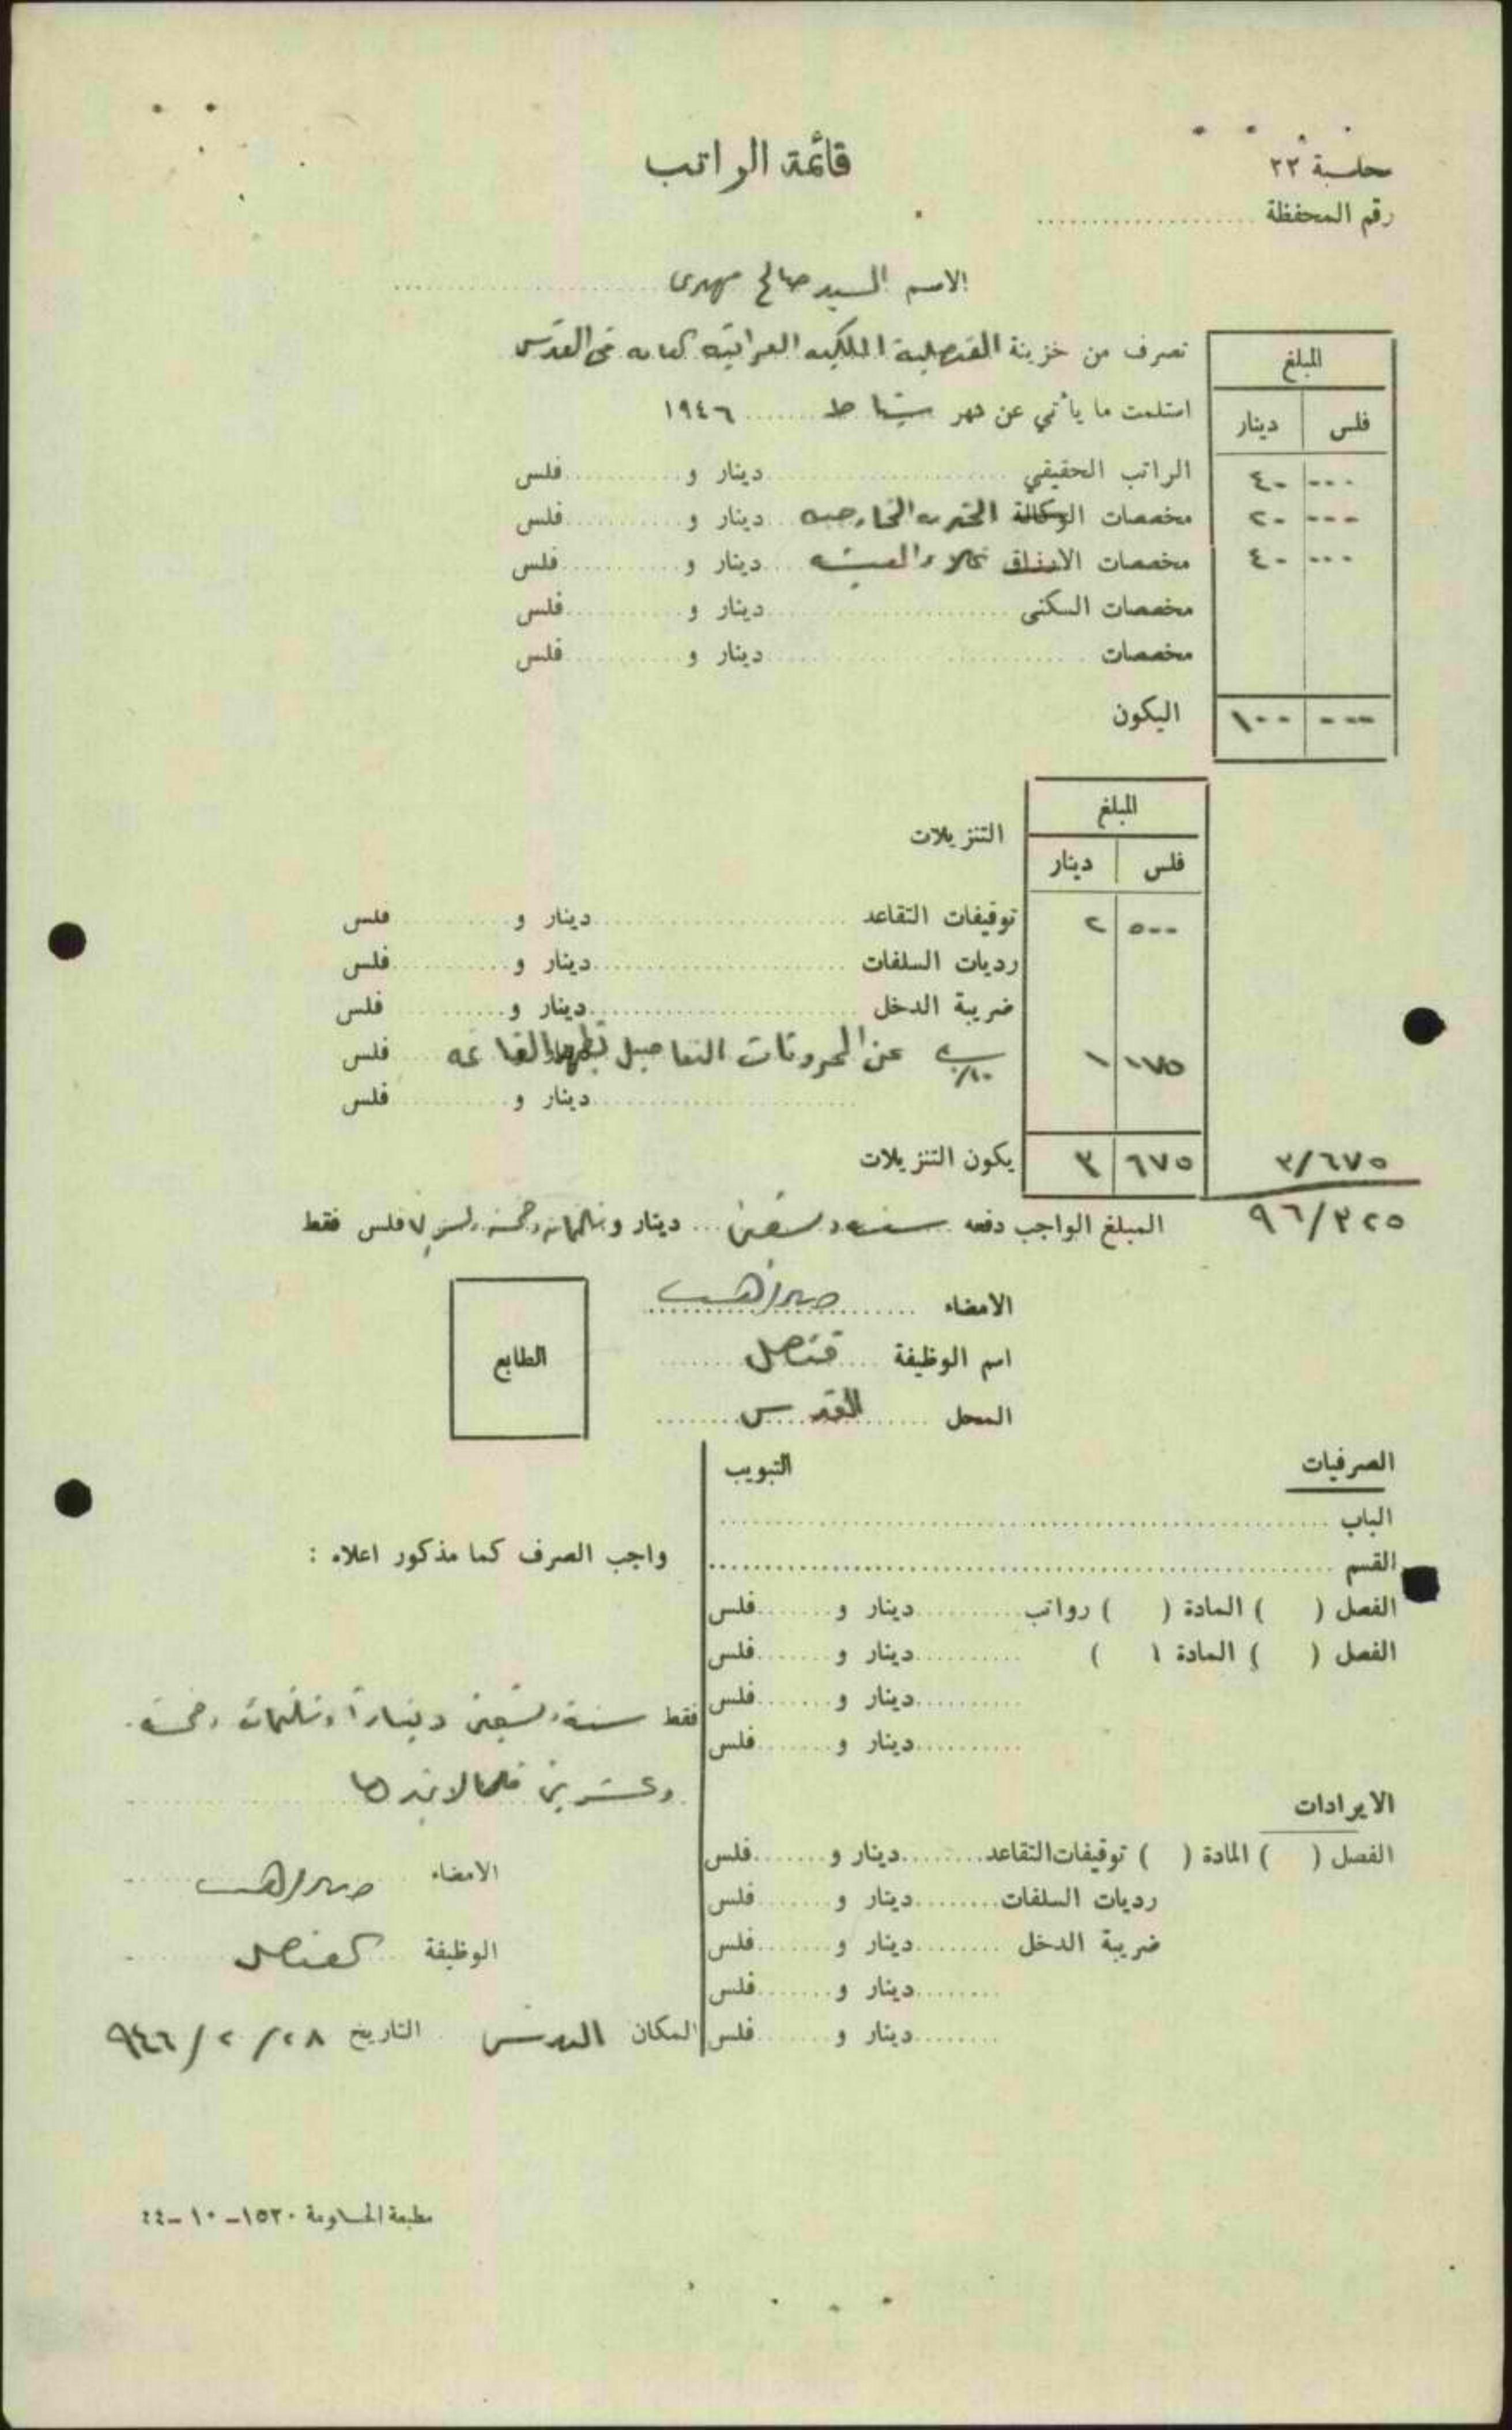 محاسبة ٢٣
قائمة الراتب
رقم المحفظة
الاسم السيد صالح مهدي
تصرف من خزينة القنصلية الملكية العراقية العامة في القدس
استلمت ما يأتي عن شهر شباط ١٩٤٦
المبلغ
فلس دينار
الراتب الحقيقي دينار و فلس ٠٠٠ ٤٠
مخصصات الوكالة الخدمة الخارجية دينار و فلس ٠٠٠ ٢٠
مخصصات الارزاق غلاء المعيشة دينار و فلس ٠٠٠ ٤٠
مخصصات السكنى دينار و فلس
مخصصات دينار و فلس
اليكون ٠٠٠ ١٠٠
المبلغ
التنزيلات
فلس دينار
توقيفات التقاعد دينار و فلس ٥٠٠ ٢
رديات السلفات دينار و فلس
ضريبة الدخل دينار و فلس
عن المحروقات التفاصيل بظهر القائمة فلس ١٧٥ ١
دينار و فلس
يكون التنزيلات ٦٧٥ ٣ ٣/٦٧٥
المبلغ الواجب دفعه ستة وتسعين دينار و ثلثمائة وخمسة وعشرين فلس فقط ٩٦/٣٢٥
الامضاء
اسم الوظيفة قنصل
المحل القدس
الطابع
الصرفيات التبويب
الباب
القسم
الفصل ( ) المادة ( ) رواتب دينار و فلس
الفصل ( ) المادة ( ) دينار و فلس
دينار و فلس
دينار و فلس
الايرادات
الفصل ( ) المادة ( ) توقيفات التقاعد دينار و فلس
رديات السلفات دينار و فلس
ضريبة الدخل دينار و فلس
دينار و فلس
دينار و فلس
واجب الصرف كما مذكور اعلاه :
فقط ستة وتسعين ديناراً وثلثمائة وخمسة
وعشرين فلسا لاغيرها
الامضاء
الوظيفة القنصل
المكان القدس التاريخ ٢٨/٢/٩٤٦
مطبعة الحكومة ١٥٢٠-١٠-٤٤